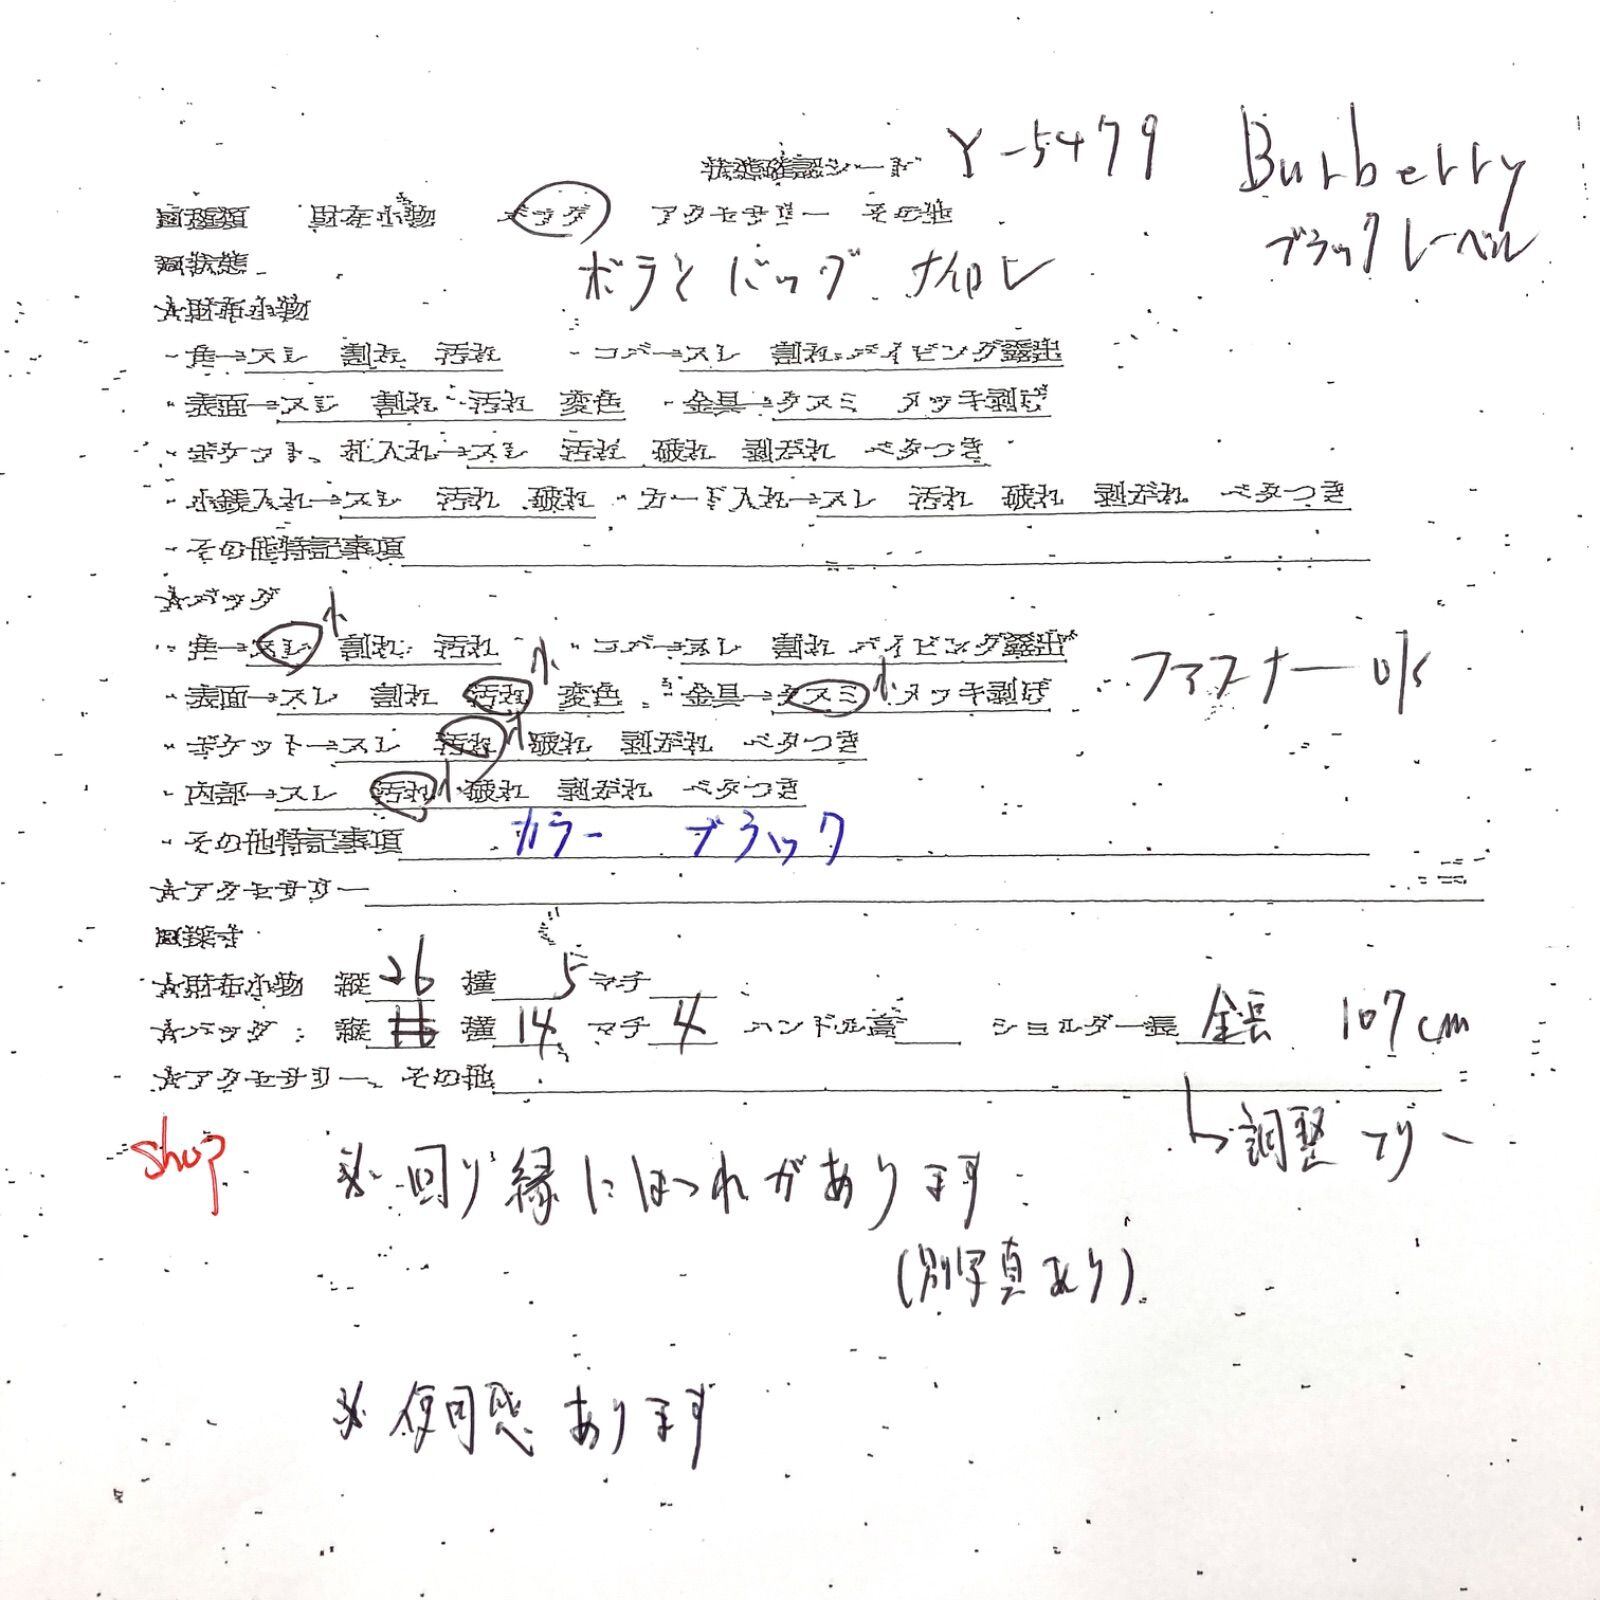 状態確認シート Y-5479 Burberry
ブラックレーベル
財布小物 バッグ アクセサリー その他
□状態
ボディバッグ ナイロン
★財布小物
・角→スレ 割れ 汚れ ・コバ→スレ 割れ パイピング露出
・表面→スレ 割れ 汚れ 変色 ・金具→クスミ メッキ剥げ
・ポケット、札入れ→スレ 汚れ 破れ 剥がれ ベタつき
・小銭入れ→スレ 汚れ 破れ ・カード入れ→スレ 汚れ 破れ 剥がれ ベタつき
・その他特記事項
★バッグ
・角→スレ 小 割れ 汚れ ・コバ→スレ 割れ パイピング露出
・表面→スレ 割れ 汚れ 小 変色 ・金具→クスミ 小 メッキ剥げ ファスナー ok
・ポケット→スレ 汚れ 小 破れ 剥がれ ベタつき
・内部→スレ 汚れ 小 破れ 剥がれ ベタつき
・その他特記事項 カラー ブラック
★アクセサリー
□採寸
★財布小物 縦 26 横 5 マチ
★バッグ 縦 横 14 マチ 4 ハンドル高 ショルダー長 全長 107cm
★アクセサリー、その他
↳調整フリー
shop ※回り縁にほつれがあります
(別写真あり)
※使用感あります